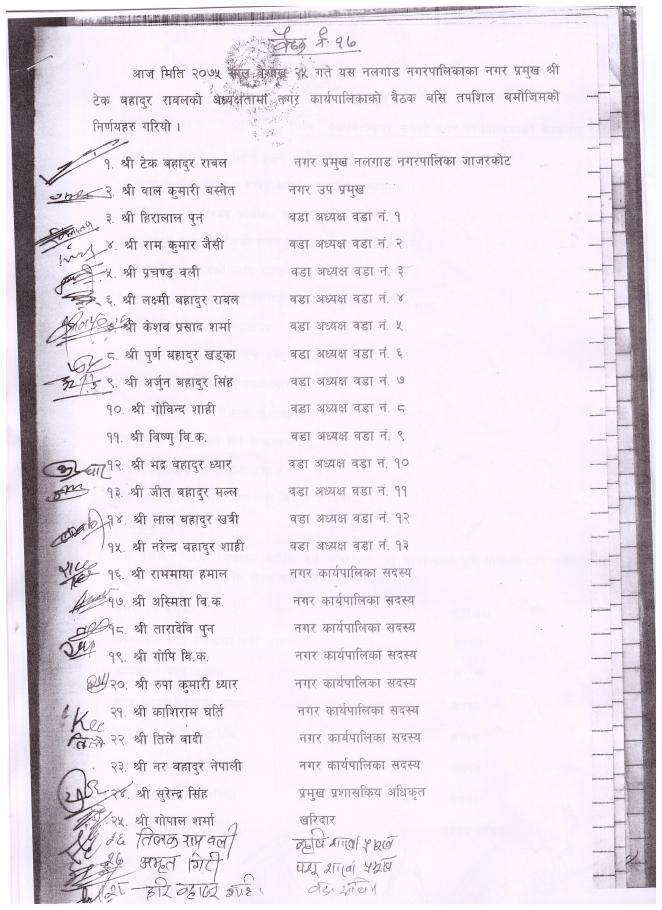 बैठक नं. १७
आज मिति २०७५ साल बैशाख २५ गते यस नलगाड नगरपालिकाका नगर प्रमुख श्री
टेक बहादुर रावलको अध्यक्षतामा नगर कार्यपालिकाको बैठक बसि तपशिल बमोजिमको
निर्णयहरु गरियो ।
१. श्री टेक बहादुर रावल नगर प्रमुख नलगाड नगरपालिका जाजरकोट
२. श्री बाल कुमारी बस्नेत नगर उप प्रमुख
३. श्री हिरालाल पुन वडा अध्यक्ष वडा नं. १
४. श्री राम कुमार जैसी वडा अध्यक्ष वडा नं. २
५. श्री प्रचण्ड वली वडा अध्यक्ष वडा नं. ३
६. श्री लक्ष्मी बहादुर रावल वडा अध्यक्ष वडा नं. ४
श्री केशब प्रसाद शर्मा वडा अध्यक्ष वडा नं. ५
८. श्री पुर्ण बहादुर खड्का वडा अध्यक्ष वडा नं. ६
९. श्री अर्जुन बहादुर सिंह वडा अध्यक्ष वडा नं. ७
१०. श्री गोविन्द शाही वडा अध्यक्ष वडा नं. ८
११. श्री विष्णु वि.क. वडा अध्यक्ष वडा नं. ९
१२. श्री भद्र बहादुर ध्यार वडा अध्यक्ष वडा नं. १०
१३. श्री जीत बहादुर मल्ल वडा अध्यक्ष वडा नं. ११
१४. श्री लाल बहादुर खत्री वडा अध्यक्ष वडा नं. १२
१५. श्री नरेन्द्र बहादुर शाही वडा अध्यक्ष वडा नं. १३
१६. श्री राममाया हमाल नगर कार्यपालिका सदस्य
१७. श्री अस्मिता वि.क. नगर कार्यपालिका सदस्य
१८. श्री तारादेवि पुन नगर कार्यपालिका सदस्य
१९. श्री गोपि वि.क. नगर कार्यपालिका सदस्य
२०. श्री रुपा कुमारी ध्यार नगर कार्यपालिका सदस्य
२१. श्री काशिराम घर्ति नगर कार्यपालिका सदस्य
तिले २२. श्री तिले बादी नगर कार्यपालिका सदस्य
२३. श्री नर बहादुर नेपाली नगर कार्यपालिका सदस्य
२४. श्री सुरेन्द्र सिंह प्रमुख प्रशासकिय अधिकृत
२५. श्री गोपाल शर्मा खरिदार
२६ तिलक राम वली कृषि शाखा प्रमुख
२७ अमृत गिरी पशु शाखा प्रमुख
हरि बहादुर